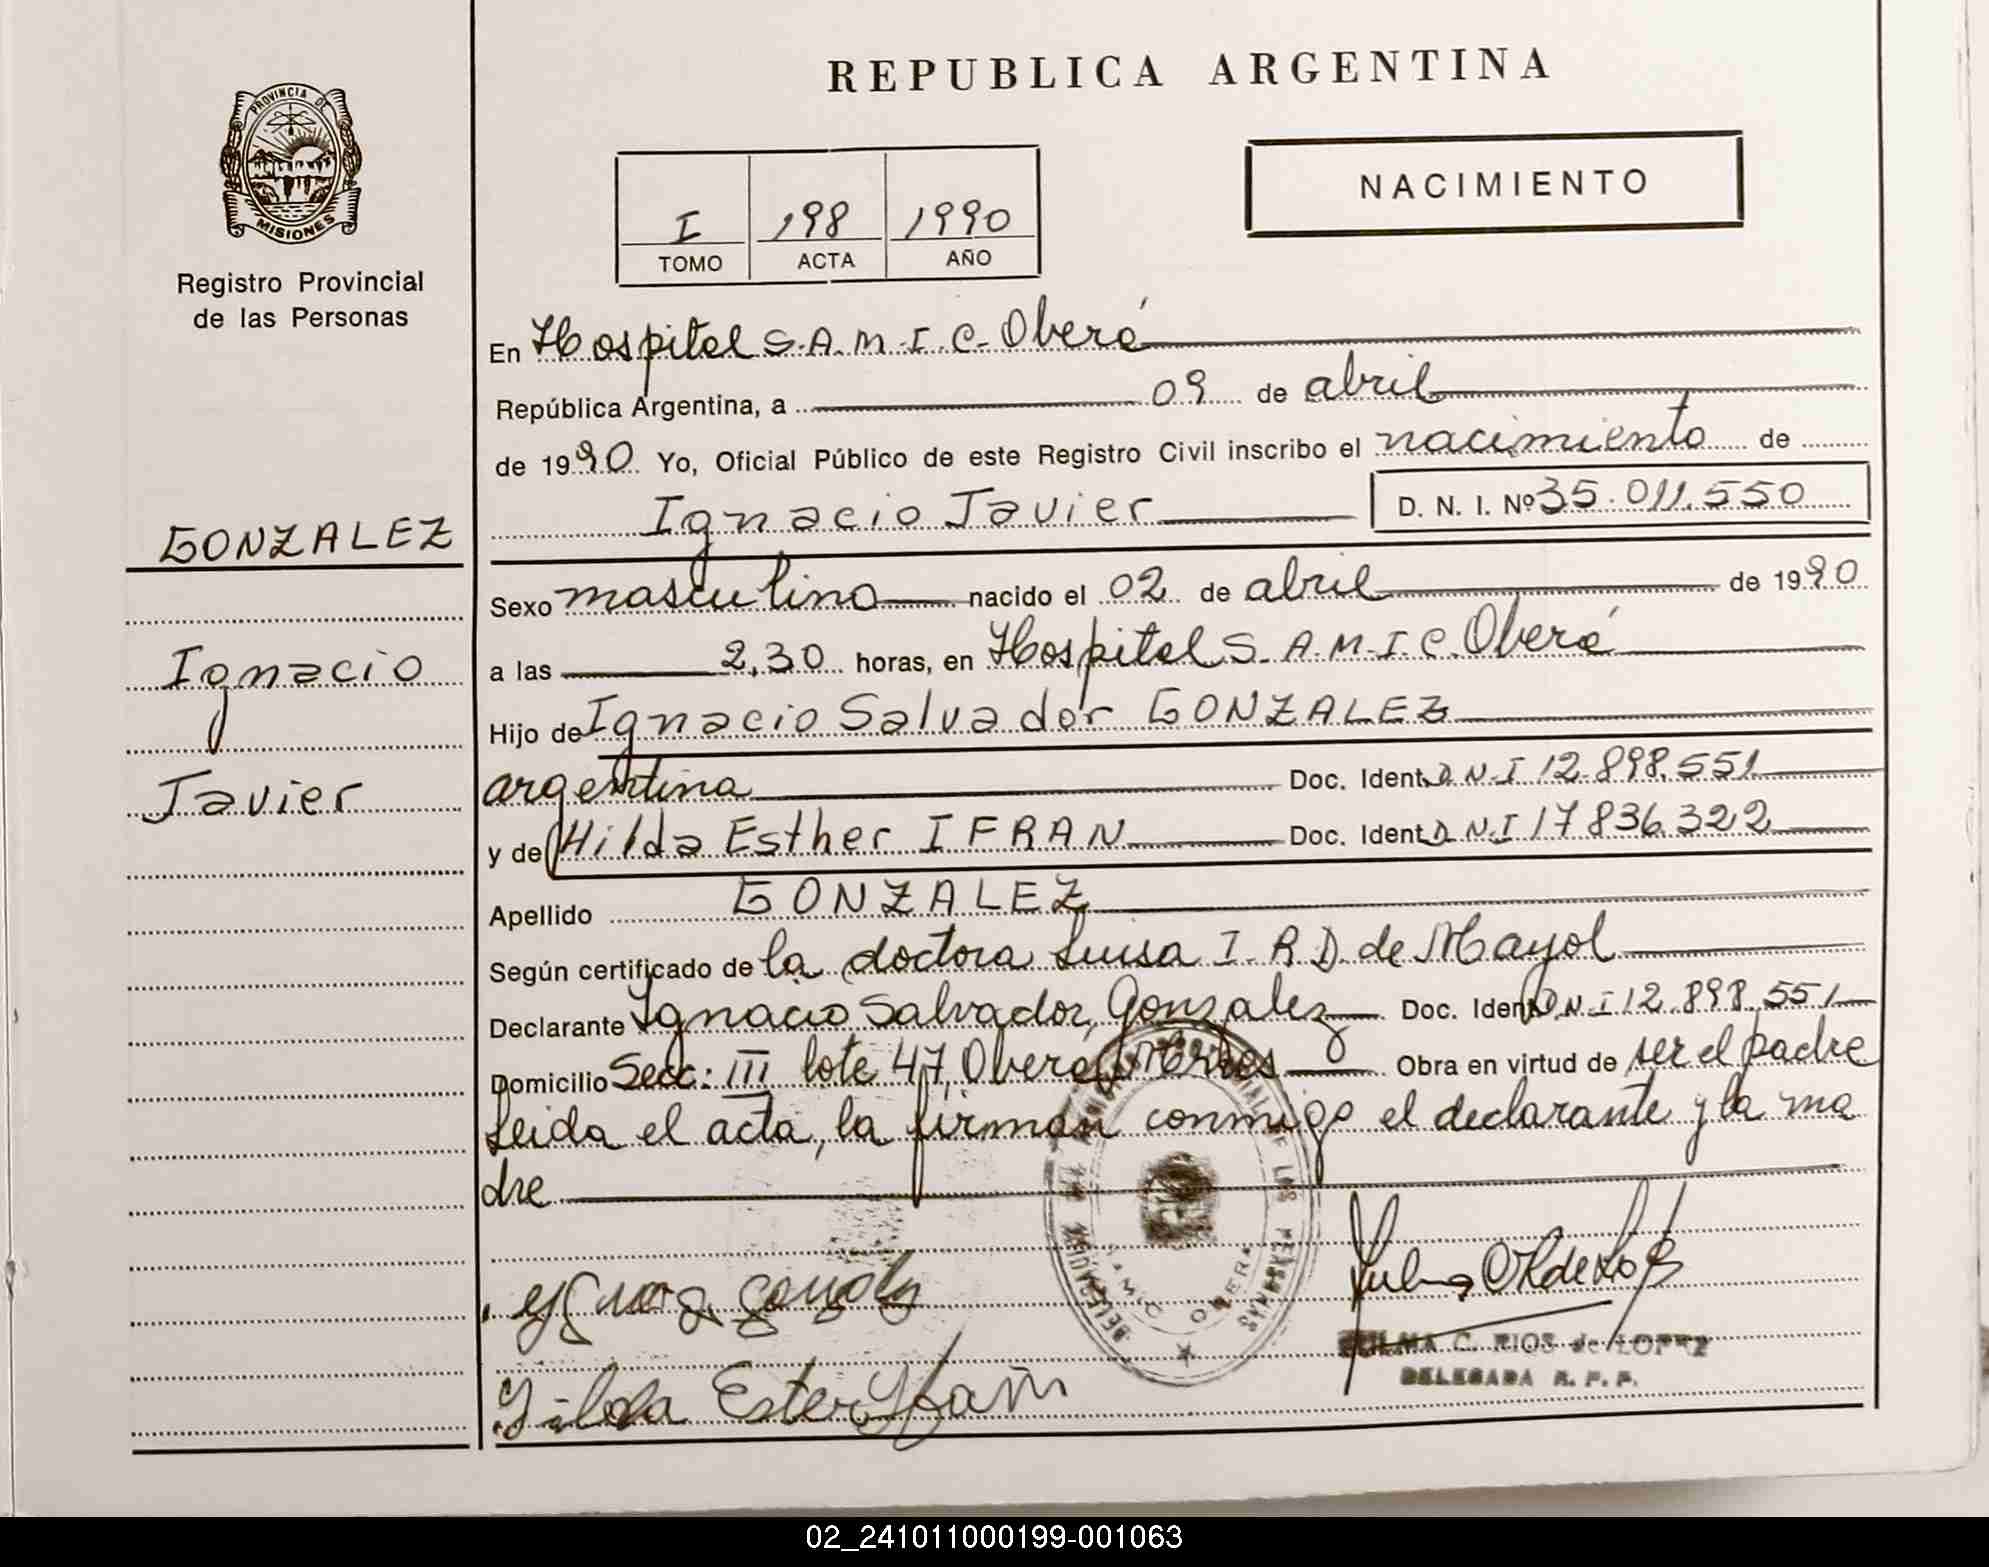 PROVINCIA DE
MISIONES
Registro Provincial
de las Personas
GONZALEZ
Ignacio
Javier
REPUBLICA ARGENTINA
I 198 1990
TOMO ACTA AÑO
NACIMIENTO
En Hospital S.A.M.I.C. Oberá
República Argentina, a 09 de abril
de 1990 Yo, Oficial Público de este Registro Civil inscribo el nacimiento de
Ignacio Javier D. N. I. Nº 35.011.550
Sexo masculino nacido el 02 de abril de 1990
a las 2,30 horas, en Hospital S.A.M.I.C. Oberá
Hijo de Ignacio Salvador GONZALEZ
argentina Doc. Ident. D.N.I 12.898.551
y de Hilda Esther IFRAN Doc. Ident. D.N.I 17836.322
Apellido GONZALEZ
Según certificado de la doctora Luisa I. R. D. de Mayol
Declarante Ignacio Salvador Gonzalez Doc. Ident. D.N.I 12.898.551
Domicilio Secc: III lote 47, Oberá, Mnes Obra en virtud de ser el padre
Leida el acta, la firman conmigo el declarante y la ma
dre
Hilda Ester Ifran
ZULMA C. RIOS de LOPEZ
DELEGADA R. P. P.
02_241011000199-001063